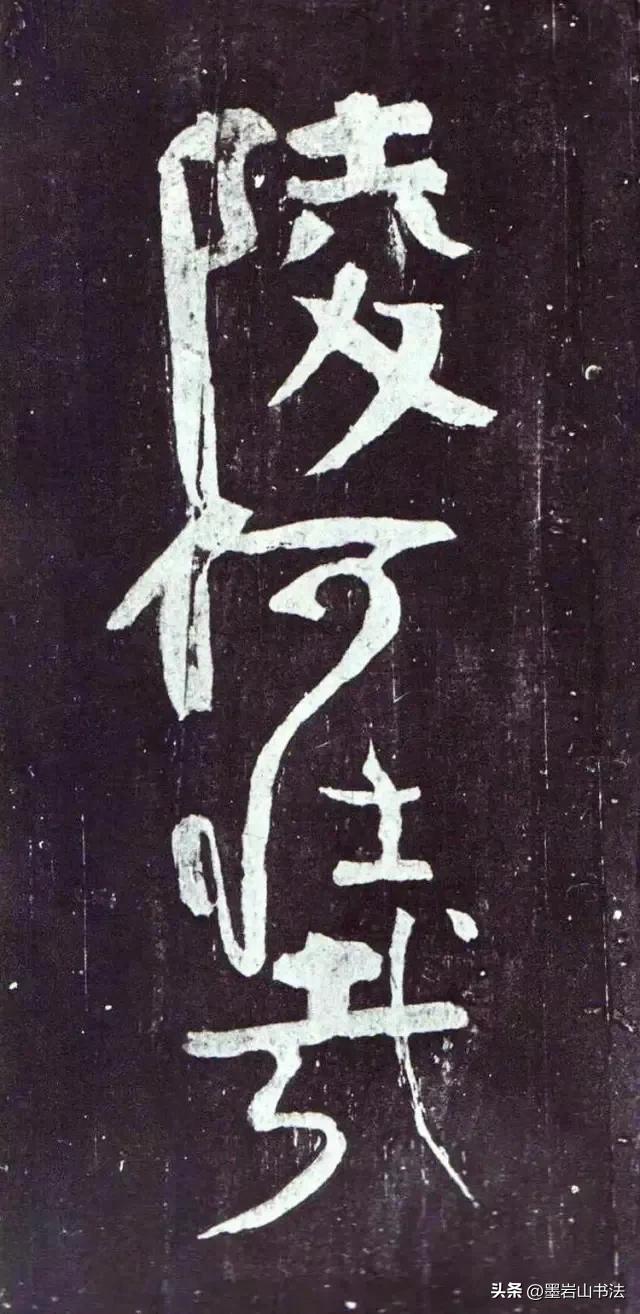 陵何壮哉
头条 @墨岩山书法